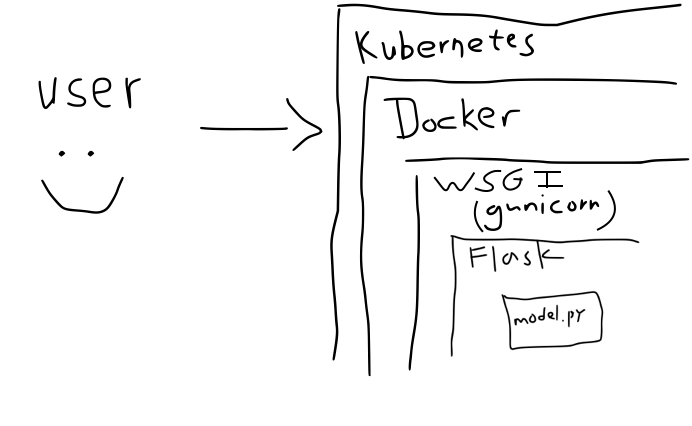 user
Kubernetes
Docker
WSGI
(gunicorn)
Flask
model.py